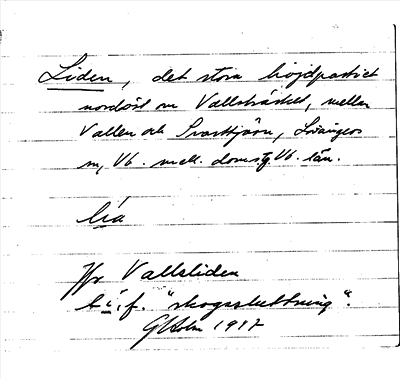 Liden, det stora höjdpartiet
nordöst om Vallsträsket, mellan
Vallen och Svarttjärn, Lövångers
sn, Vb. mell. doms. Vb. län.
lia
Jfr Vallsliden
b. i. f. "skogssluttning".
G Holm 1917